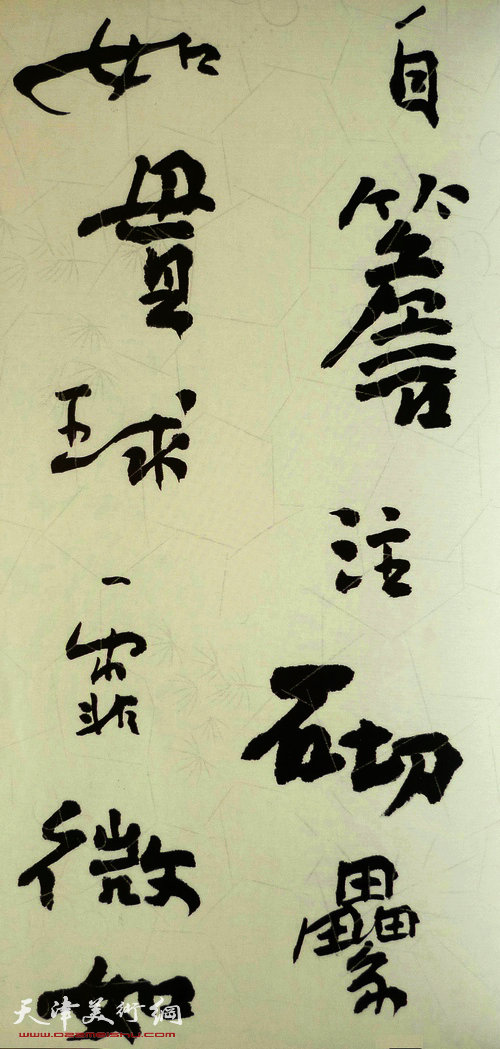 自簷注砌纍
如貫球霏微如
天津美術網
www.022meishu.com